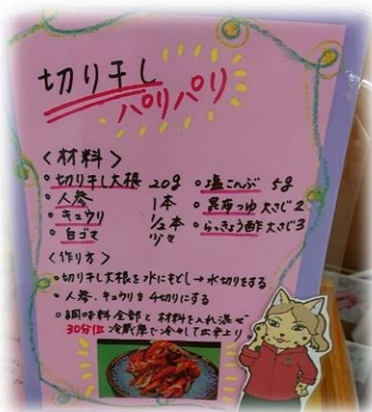 切り干し
パリパリ
<材料>
・切り干し大根 20g
・人参 1本
・キュウリ 1/2本
・白ゴマ 少々
・塩こんぶ 5g
・昆布つゆ 大さじ2
・らっきょう酢 大さじ3
<作り方>
・切り干し大根を水にもどし→水切りをする
・人参、キュウリを4切りにする
・調味料全部と材料を入れ混ぜ
30分位冷蔵庫で冷々して出来上り